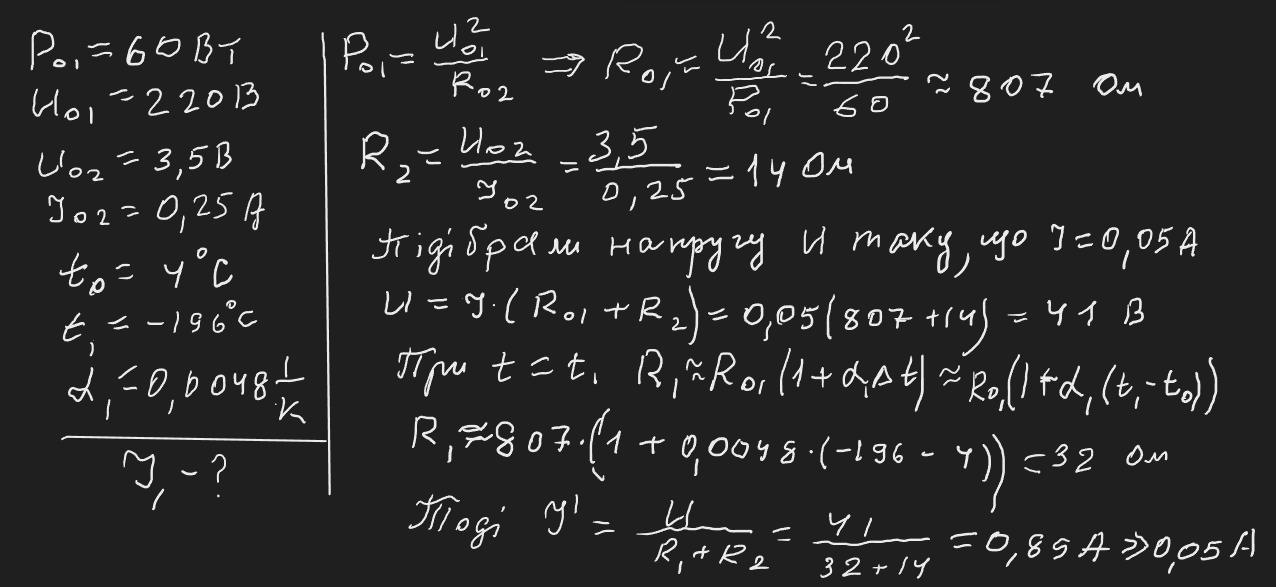 P₀₁ = 60 Вт
U₀₁ = 220 В
U₀₂ = 3,5 В
I₀₂ = 0,25 А
t₀ = 4°C
t₁ = -196°C
α₁ = 0,0048 1/K
I₁ - ?
P₀₁ = U₀₁²/R₀₂ ⇒ R₀₁ = U₀₁²/P₀₁ = 220²/60 ≈ 807 Ом
R₂ = U₀₂/I₀₂ = 3,5/0,25 = 14 Ом
Підібрали напругу U таку, що I = 0,05 А
U = I·(R₀₁ + R₂) = 0,05(807 + 14) = 41 В
При t = t₁ R₁ ≈ R₀₁(1 + α₁Δt) ≈ R₀₁(1 + α₁(t₁ - t₀))
R₁ ≈ 807·(1 + 0,0048·(-196 - 4)) = 32 Ом
Тоді I' = U/(R₁ + R₂) = 41/(32 + 14) = 0,89 А ≫ 0,05 А